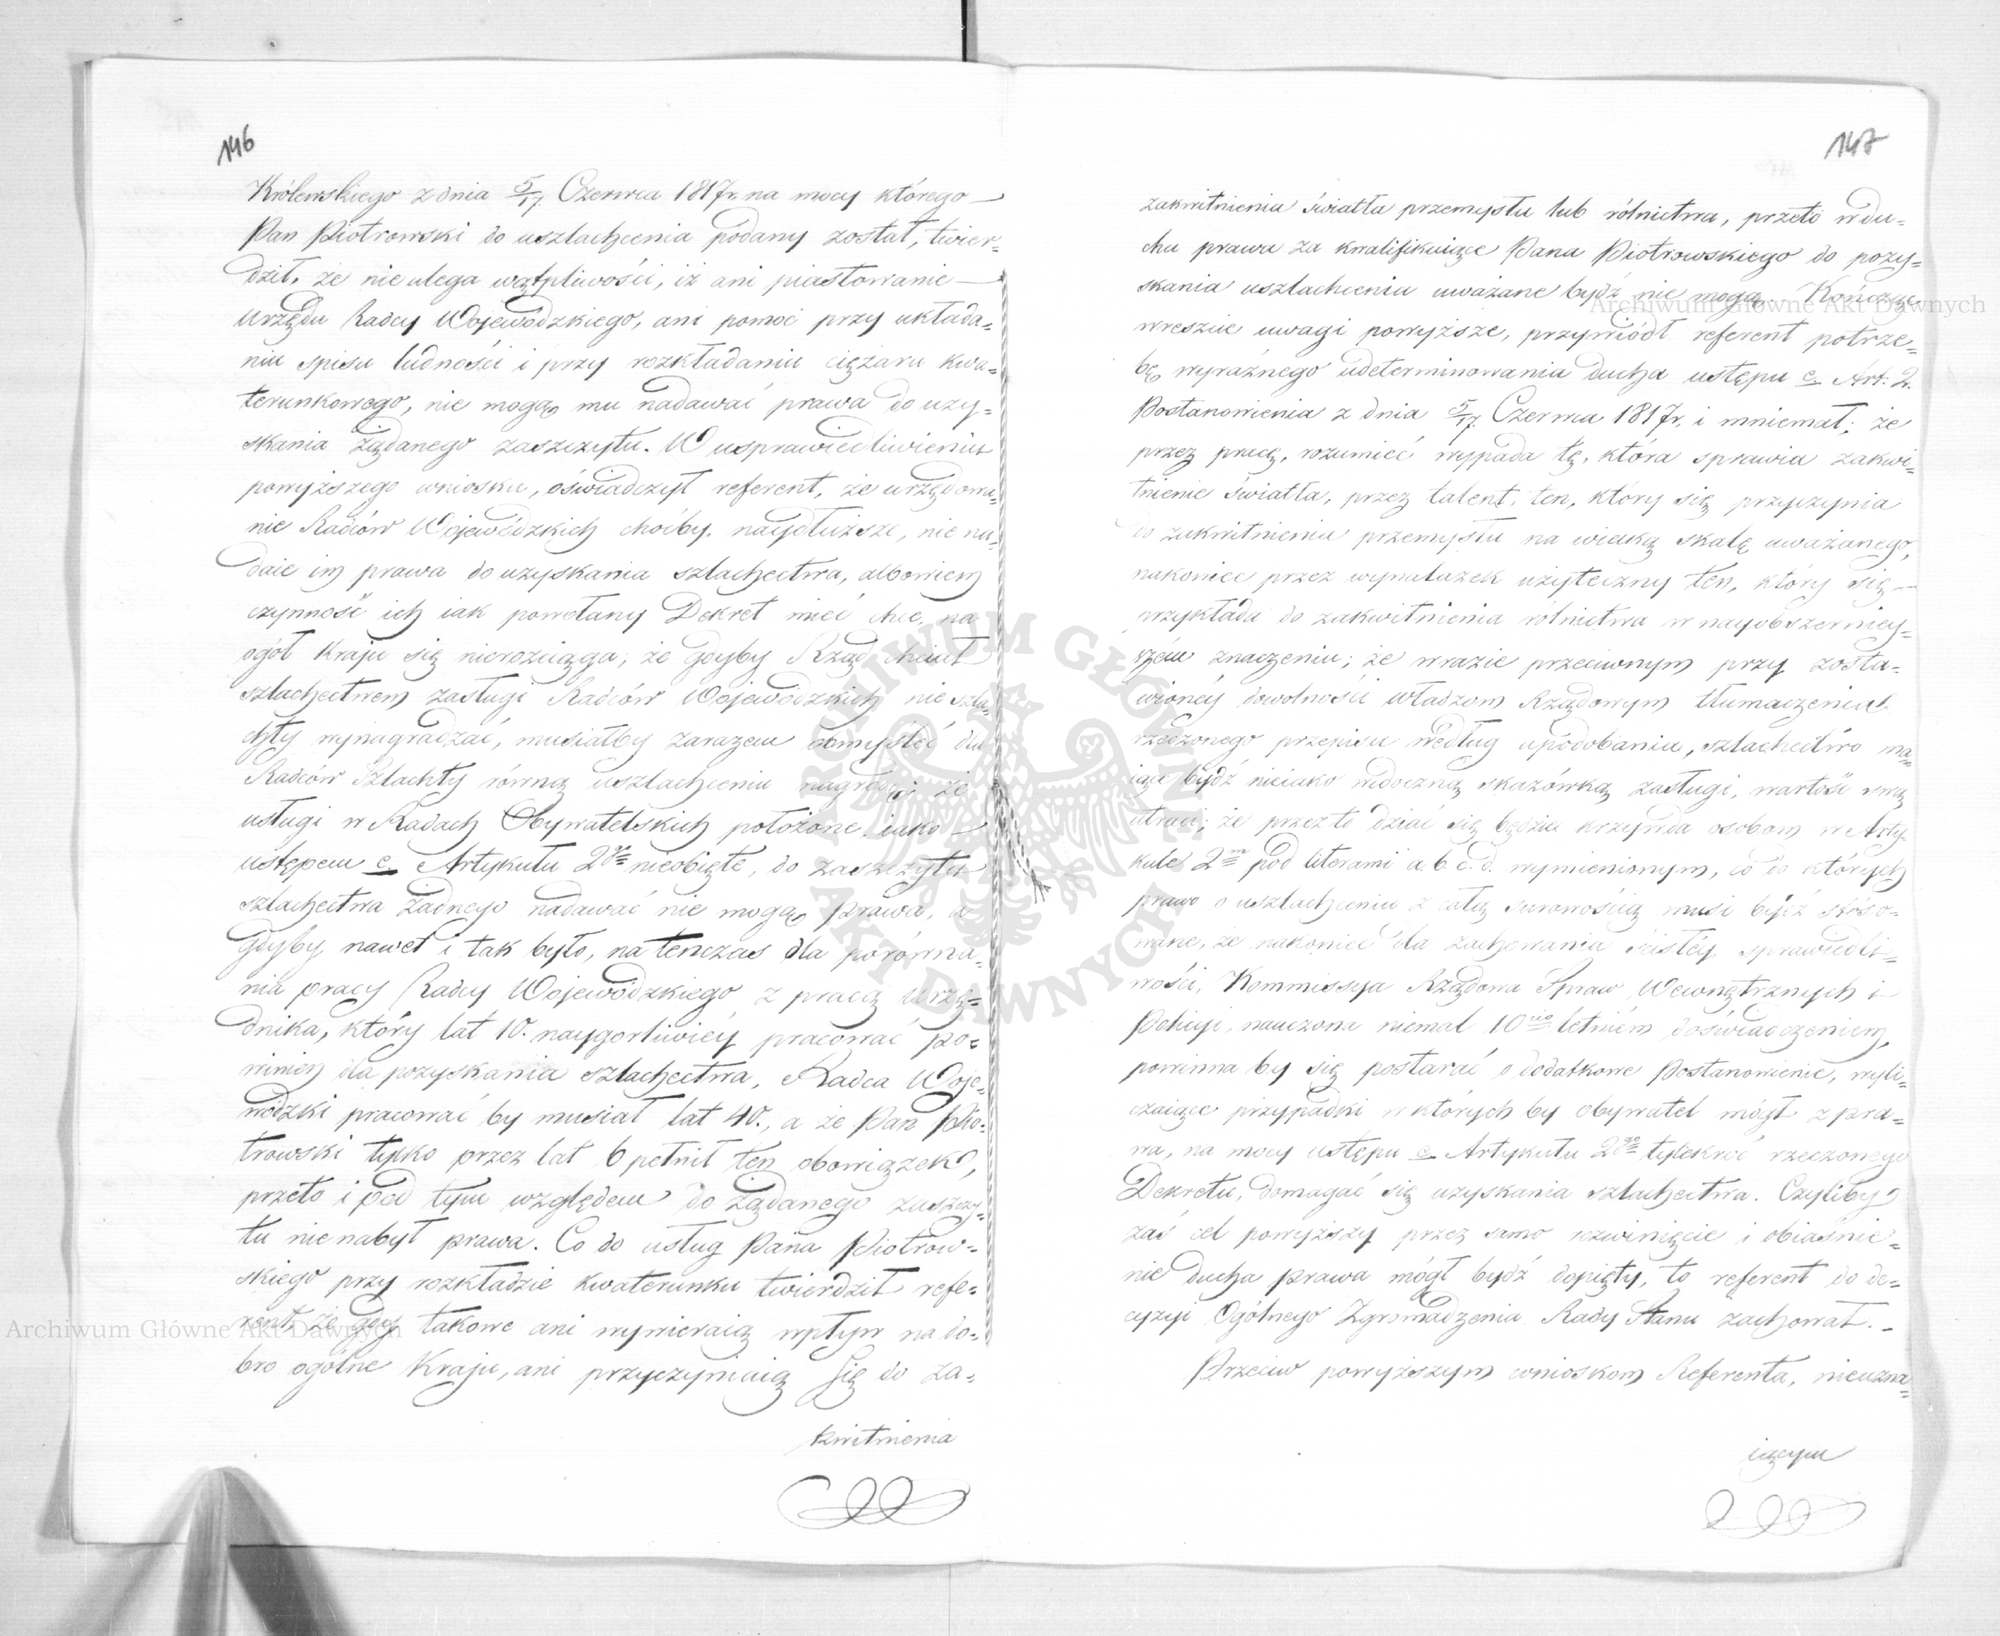 146
Królewskiego z dnia 5/17 Czerwca 1817r. na mocy którego —
Pan Piotrowski do uszlachcenia podany został, twier=
dził, że nie ulega wątpliwości, iż ani piastowanie —
Urzędu Radcy Wojewódzkiego, ani pomoc przy układa=
niu spisu ludności i przy rozkładaniu ciężaru kwa=
terunkowego, nie mogą mu nadawać prawa do uzy=
skania żądanego zaszczytu. W usprawiedliwieniu
powyższego wniosku, oświadczył referent, że urzędowa=
nie Radców Wojewódzkich choćby naydłuższe, nie na=
daie im prawa do uzyskania szlachectwa, albowiem
czynność ich iak powołany Dekret mieć chce, na
ogół Kraju się nierozciąga; że gdyby Rząd chciał
szlachectwem zasługi Radców Wojewódzkich nie szla=
chty wynagradzać, musiałby zarazem obmyśleć dla
Radców Szlachty równą uszlachceniu nagrodę; że
usługi w Radach Obywatelskich położone, iako —
ustępem e. Artykułu 2go nieobięte, do zaszczytu
szlachectwa żadnego nadawać nie mogą prawa, a
gdyby nawet i tak było, na tenczas dla porówna=
nia pracy Radcy Wojewódzkiego z pracą Urzę=
dnika, który lat 10. naygorliwiéy pracować po=
winien dla pozyskania szlachectwa, Radca Woje=
wódzki pracować by musiał lat 40., a że Pan Pio=
trowski tylko przez lat 6 pełnił ten obowiązek,
przeto i pod tym względem do żądanego zaszczy=
tu nie nabył prawa. Co do usług Pana Piotrow=
skiego przy rozkładzie kwaterunku twierdził refe=
rent, że gdy takowe ani wywieraią wpływ na do=
bro ogólne Kraju, ani przyczyniaią się do za=
kwitnienia
147
zakwitnienia światła przemysłu lub rólnictwa, przeto w du=
chu prawa za kwalifikuiące Pana Piotrowskiego do pozy=
skania uszlachcenia uważane bydź nie mogą. Kończąc
wreszcie uwagi powyższe, przywiódł referent potrze=
bę wyraźnego udeterminowania ducha ustępu e. Art: 2.
Postanowienia z dnia 5/17 Czerwca 1817r. i mniemał; że
przez pracę, rozumieć wypada tę, która sprawia zakwi=
tnienie światła, przez talent, ten, który się przyczynia
do zakwitnienia przemysłu na wielką skalę uważanego,
nakoniec przez wynalazek użyteczny ten, który się —
przykłada do zakwitnienia rólnictwa w nayobszerniey=
szém znaczeniu; że w razie przeciwnym przy zosta=
wionéy dowolności władzom Rządowym tłumaczenia
rzeczonego przepisu według upodobania, szlachectwo ma=
iące bydź nieiako widoczną skazówką zasługi, wartość swą
utraci; że przez to dziać się będzie krzywda osobom w Arty=
kule 2m pod literami a. b. c. d. wymienionym, co do których
prawo o uszlachceniu z całą surowością musi bydź stóso=
wane, że nakoniec dla zachowania ścisłéy sprawiedli=
wości, Kommissya Rządowa Spraw Wewnętrznych i
Policyi, nauczona niemal 10cio letniém doświadczeniem,
powinna by się postarać o dodatkowe Postanowienie, wyli=
czaiące przypadki w których by obywatel mógł z pra=
wa, na mocy ustępu e. Artykułu 2go tylekroć rzeczonego
Dekretu, domagać się uzyskania szlachectwa. Czyliby
zaś cel powyższy przez samo rozwinięcie i obiaśnie=
nie ducha prawa mógł bydź dopięty, to referent do de=
cyzyi Ogólnego Zgromadzenia Rady Stanu zachował. —
Przeciw powyższym wnioskom Referenta, nieuzna=
iącym
Archiwum Główne Akt Dawnych
Archiwum Główne Akt Dawnych
ARCHIWUM GŁÓWNE AKT DAWNYCH